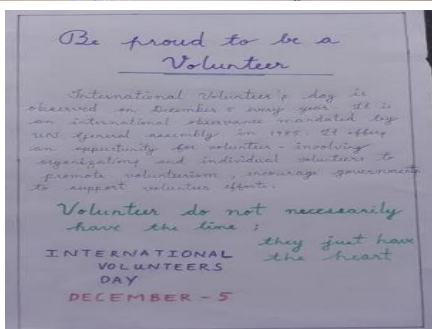 Be proud to be a
Volunteer
International Volunteer's day is
observed on December 5 every year. It is
an international observance mandated by
UN General assembly in 1985. It offers
an opportunity for volunteer - involving
organizations and individual volunteers to
promote volunteerism, encourage government
to support volunteer efforts.
Volunteer do not necessarily
have the time;
they just have
the heart
INTERNATIONAL
VOLUNTEERS
DAY
DECEMBER - 5